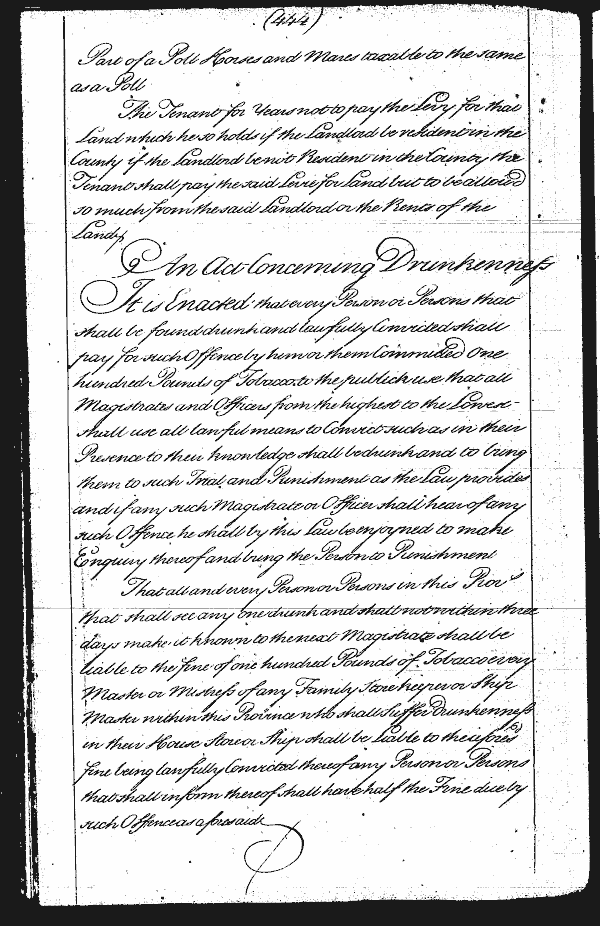 (444)
Part of a Poll Horses and Mares taxable to the same
as a Poll
The Tenant for Years not to pay the Levy for that
Land which he so holds if the Landlord be resident in the
County if the Landlord be not Resident in the County the
Tenant shall pay the said Levie for Land but to be allowed
so much from the said Landlord or the Rents of the
Land
An Act Concerning Drunkenness
It is Enacted that every Person or Persons that
shall be found drunk and lawfully Convicted shall
pay for such Offence by him or them Committed One
hundred Pounds of Tobacco to the publick use that all
Magistrates and Officers from the highest to the Lowest
shall use all lawful means to Convict such as in their
Presence to their knowledge shall be drunk and to bring
them to such Trial and Punishment as the Law provides
and if any such Magistrate or Officer shall hear of any
such Offence he shall by this Law be enjoyned to make
Enquiry thereof and bring the Person to Punishment
That all and every Person or Persons in this Prov
that shall see any one drunk and shall not within three
days make it known to the next Magistrate shall be
liable to the fine of one hundred Pounds of Tobacco every
Master or Mistress of any Family Storekeeper or Ship
Master within this Province who shall Suffer drunkenness
in their House Store or Ship shall be Liable to the aforesd
fine being lawfully Convicted thereof any Person or Persons
that shall inform thereof shall have half the Fine due by
such Offence as aforesaid